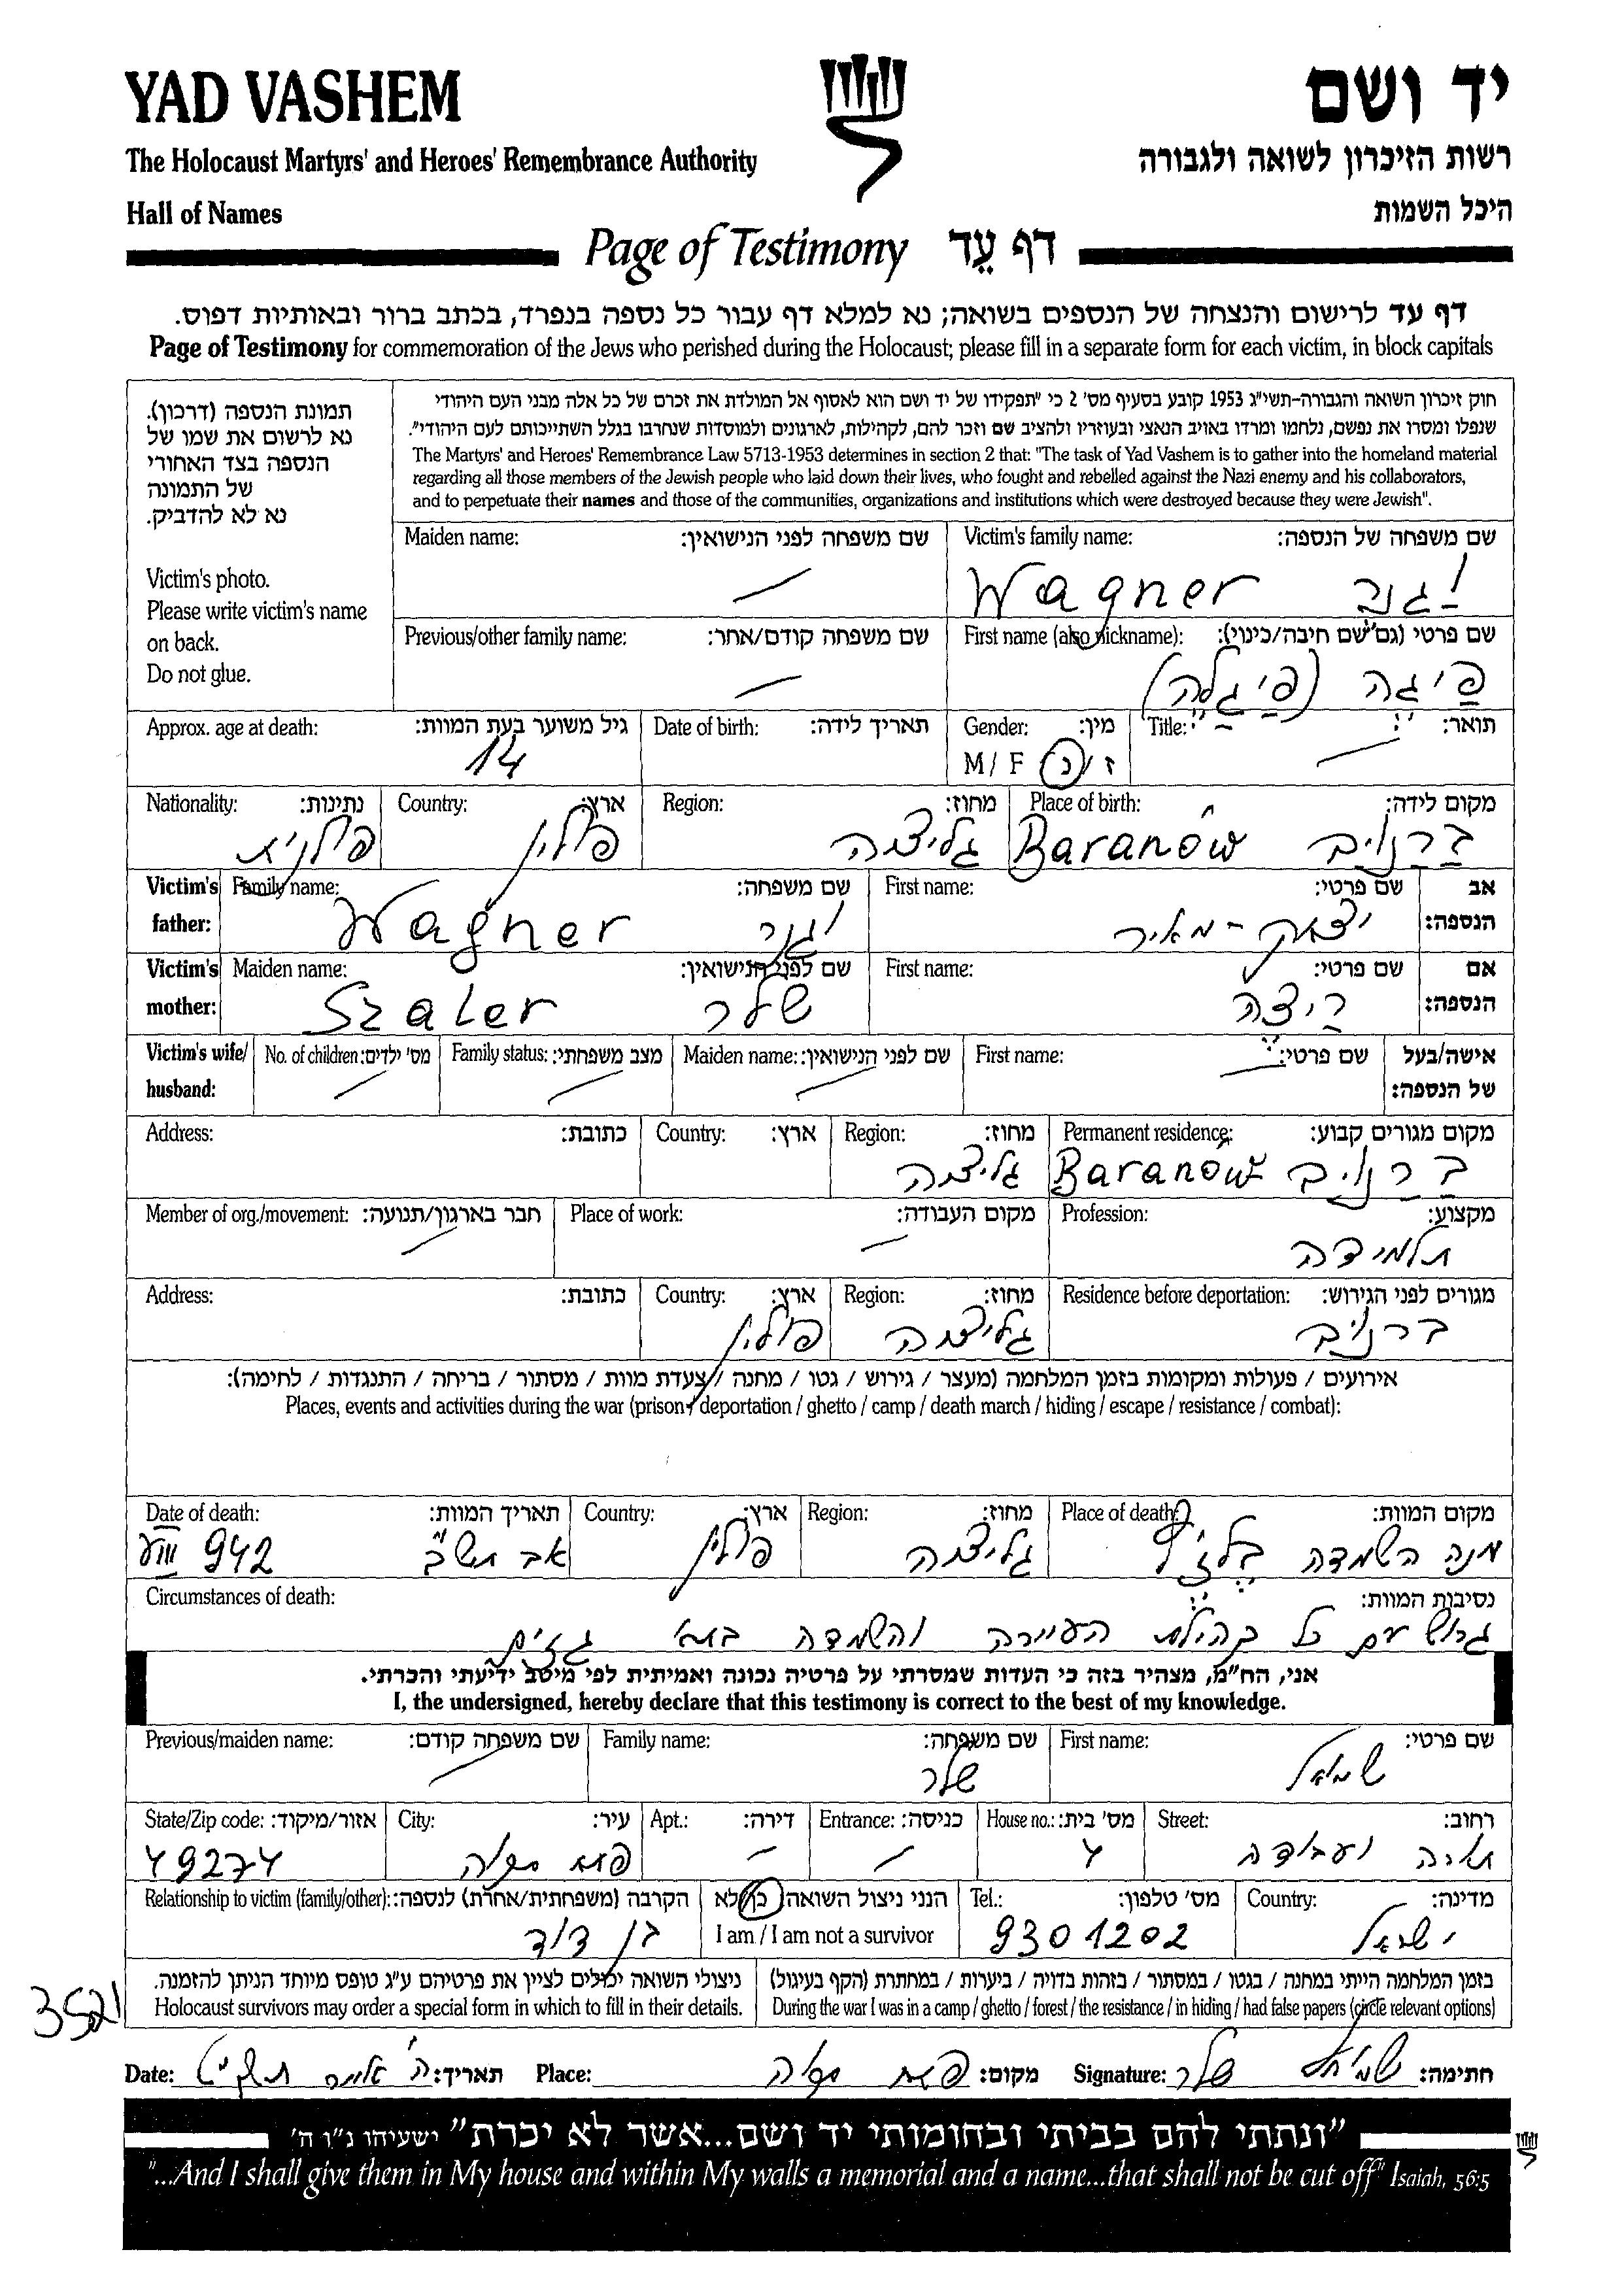 YAD VASHEM יד ושם
The Holocaust Martyrs' and Heroes' Remembrance Authority רשות הזיכרון לשואה ולגבורה
Hall of Names היכל השמות
Page of Testimony דף עֵד
דף עד לרישום והנצחה של הנספים בשואה; נא למלא דף עבור כל נספה בנפרד, בכתב ברור ובאותיות דפוס.
Page of Testimony for commemoration of the Jews who perished during the Holocaust; please fill in a separate form for each victim, in block capitals
תמונת הנספה (דרכון).
נא לרשום את שמו של
הנספה בצד האחורי
של התמונה
נא לא להדביק.
Victim's photo.
Please write victim's name
on back.
Do not glue.
חוק זיכרון השואה והגבורה-תשי"ג 1953 קובע בסעיף מס' 2 כי "תפקידו של יד ושם הוא לאסוף אל המולדת את זכרם של כל אלה מבני העם היהודי
שנפלו ומסרו את נפשם, נלחמו ומרדו באויב הנאצי ובעוזריו ולהציב שם וזכר להם, לקהילות, לארגונים ולמוסדות שנחרבו בגלל השתייכותם לעם היהודי".
The Martyrs' and Heroes' Remembrance Law 5713-1953 determines in section 2 that: "The task of Yad Vashem is to gather into the homeland material
regarding all those members of the Jewish people who laid down their lives, who fought and rebelled against the Nazi enemy and his collaborators,
and to perpetuate their names and those of the communities, organizations and institutions which were destroyed because they were Jewish".
Maiden name: שם משפחה לפני הנישואין: Victim's family name: שם משפחה של הנספה:
Wagner וגנר
Previous/other family name: שם משפחה קודם/אחר: First name (also nickname): שם פרטי (גם שם חיבה/כינוי):
פיגה (פיגלה)
Approx. age at death: גיל משוער בעת המוות: Date of birth: תאריך לידה: Gender: מין: Title: תואר:
14 M / F ז / נ
Nationality: נתינות: Country: ארץ: Region: מחוז: Place of birth: מקום לידה:
פולנית פולין גליציה Baranów ברנוב
Victim's father: Family name: שם משפחה: First name: שם פרטי: אב הנספה:
Wagner וגנר יצחק-מאיר
Victim's mother: Maiden name: שם לפני הנישואין: First name: שם פרטי: אם הנספה:
Szaler שלר ריצה
Victim's wife/ husband: No. of children: מס' ילדים: Family status: מצב משפחתי: Maiden name: שם לפני הנישואין: First name: שם פרטי: אישה/בעל של הנספה:
Address: כתובת: Country: ארץ: Region: מחוז: Permanent residence: מקום מגורים קבוע:
גליציה Baranów ברנוב
Member of org./movement: חבר בארגון/תנועה: Place of work: מקום העבודה: Profession: מקצוע:
תלמידה
Address: כתובת: Country: ארץ: Region: מחוז: Residence before deportation: מגורים לפני הגירוש:
פולין גליציה ברנוב
אירועים / פעולות ומקומות בזמן המלחמה (מעצר / גירוש / גטו / מחנה / צעדת מוות / מסתור / בריחה / התנגדות / לחימה):
Places, events and activities during the war (prison / deportation / ghetto / camp / death march / hiding / escape / resistance / combat):
Date of death: תאריך המוות: Country: ארץ: Region: מחוז: Place of death: מקום המוות:
VIII 942 אב תש"ב פולין גליציה מנה השמדה בלז'ץ
Circumstances of death: נסיבות המוות:
גרוש עם כל קהילת העיירה והשמדה בתא גזים
אני, הח"מ, מצהיר בזה כי העדות שמסרתי על פרטיה נכונה ואמיתית לפי מיטב ידיעתי והכרתי.
I, the undersigned, hereby declare that this testimony is correct to the best of my knowledge.
Previous/maiden name: שם משפחה קודם: Family name: שם משפחה: First name: שם פרטי:
שלר שמואל
State/Zip code: אזור/מיקוד: City: עיר: Apt.: דירה: Entrance: כניסה: House no.: מס' בית: Street: רחוב:
49274 פתח תקוה 4 תורה ועבודה
Relationship to victim (family/other): הקרבה (משפחתית/אחרת) לנספה: הנני ניצול השואה: כן/לא Tel.: מס' טלפון: Country: מדינה:
בן דוד I am / I am not a survivor 9301202 ישראל
ניצולי השואה יכולים לציין את פרטיהם ע"ג טופס מיוחד הניתן להזמנה. בזמן המלחמה הייתי במחנה / בגטו / במסתור / בזהות בדויה / ביערות / במחתרת (הקף בעיגול)
3521 Holocaust survivors may order a special form in which to fill in their details. During the war I was in a camp / ghetto / forest / the resistance / in hiding / had false papers (circle relevant options)
Date: תאריך: Place: פתח תקוה מקום: Signature: שמואל שלר חתימה:
"ונתתי להם בביתי ובחומותי יד ושם...אשר לא יכרת" ישעיהו נ"ו ה'
"...And I shall give them in My house and within My walls a memorial and a name...that shall not be cut off" Isaiah, 56:5